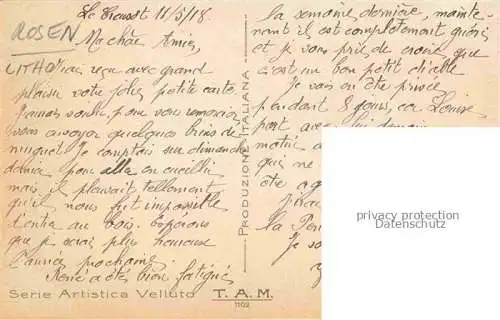 Le Creusot 11/5/18.
ROSEN
Ma chère Amie,
LITHO
J'ai reçu avec grand
plaisir votre jolie petite carte.
J'aurais voulu, pour vous remercier
vous envoyer quelques brins de
muguet. Je comptais sur dimanche
dernier pour aller en cueillir
mais il pleuvait tellement
qu'il nous fut impossible
d'entrer au bois. Espérons
que je serai plus heureuse
l'année prochaine.
René a été bien fatigué
la semaine dernière, mainte-
nant il est complètement guéri
et je vous prie de croire que
c'est un bon petit diable.
Je vais en être privée
pendant 8 jours, car Louise
part avec lui demain
matin
qui ne
être
la
Je
PRODUZIONE ITALIANA
privacy protection
www.oldthing.com
Serie Artistica Velluto T. A. M.
1102